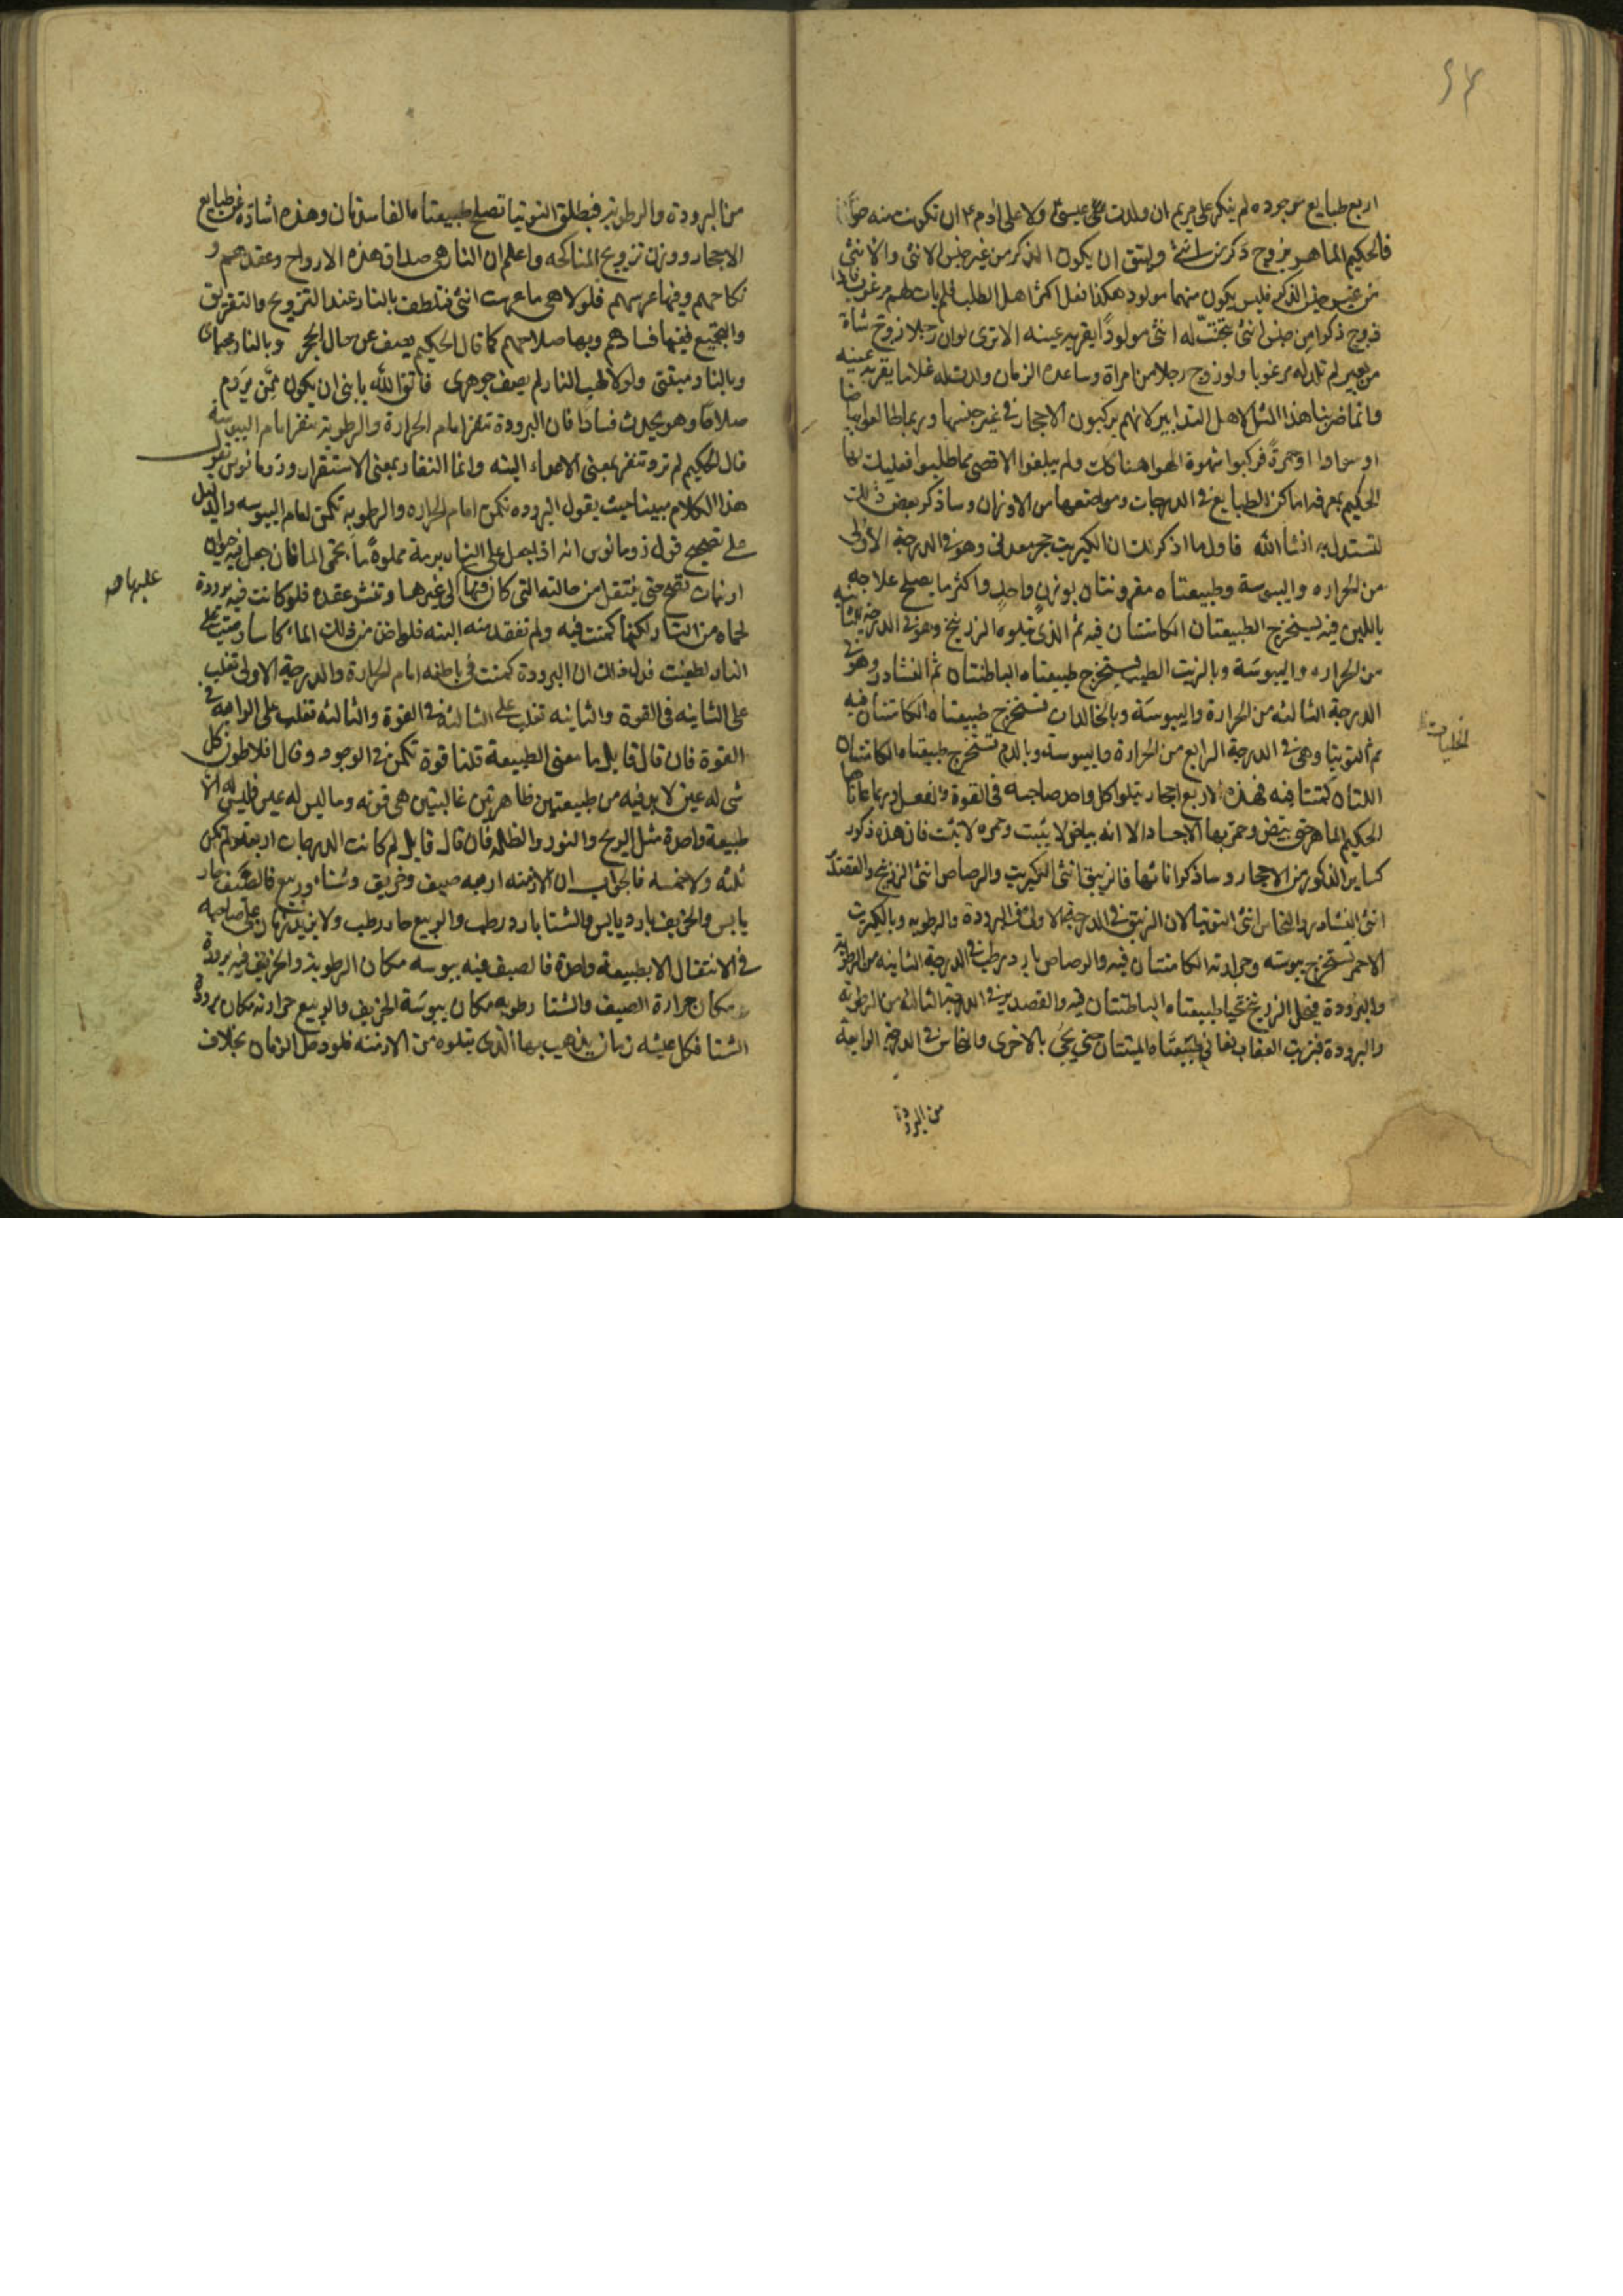 ٦٤
اربع طبايع موجوده لم ينكر على مريم ان ولدت عيسى ولا على ادم ع ان تكونت منه حوا
فالحكيم الماهر يزوج ذكر من انثى ويتق ان يكون الذكر من غير جنس الانثى والانثى
من غير جنس الذكر فليس يكون منهما مولود هكذا نقل اكثر اهل الطلب فلم يات لهم مرغوب فاذا
زوج ذكرا من جنس انثى نتجت له انثى مولودا يقر به عينه الا ترى لو ان رجلا زوج شاة
من بعير لم تلد له مرغوبا ولو زوج رجلا من امراة وساعده الزمان ولدت له غلاما يقر به عينه
وانما ضربنا هذا المثل لاهل التدابير لانهم يركبون الاحجار في غير جنسها وربما طالعوا بياضا
او سوادا او حمرة فركبوا شهوة الهوا هناكات ولم يبلغوا الاقصى مما طلبوا فعليك ايها
الحكيم بمعرفه اماكن الطبايع في الدرجات ومواضعها من الاوزان وساذكر بعض ذلك
لتستدل به انشا الله فاول ما اذكر لك ان الكبريت حجر معدني وهو في الدرجة الاولى
من الحراره واليبوسة وطبيعتاه مقرونتان بوزن واحد واكثر ما يصلح علاجه
باللبن فيه يستخرج الطبيعتان الكامنتان فيه ثم الذي يتلوه الزرنيخ وهو في الدرجه الثانيه
من الحراره واليبوسة وبالزيت الطيب يستخرج طبيعتاه الباطنتان ثم النشادر وهو في
الدرجة الثالثه من الحرارة واليبوسة وبالخالدات تستخرج طبيعتاه الكامنتان فيه
ثم التوتيا وهي في الدرجة الرابع من الحرارة واليبوسة وبالدم تستخرج طبيعتاه الكامنتان
اللتان كمنتا فيه فهذه الاربع احجار يتلوا كل واحد صاحبه في القوة والفعل وربما عاناها
الحكيم الماهر حتى بيض وحمر بها الاجساد الا انه بياض لا يثبت وحمره لا تثبت فان هذه ذكور
كساير الذكور من الاحجار وساذكر اناثها فالزيبق انثى الكبريت والرصاص انثى الزرنيخ والقصدير
انثى النشادر والنحاس انثى التوتيا لان الزيبق في الدرجة الاولى في البرودة والرطوبه وبالكبريت
الاحمر تستخرج يبوسته وحرارته الكامنتان فيه والرصاص بارد رطب في الدرجة الثانيه من الرطوبة
والبرودة فبخل الزرنيخ تحيا طبيعتاه الباطنتان فيه والقصدير في الدرجة الثالثه من الرطوبة
والبرودة فبزيت العقاب تعاني طبيعتاه الميتتان حتى يحي بالاخرى والنحاس في الدرجه الرابعة
من البرودة
من البرودة والرطوبة فبطلق التوتيا تصلح طبيعتاه الفاسدتان وهذه اشارة عن طبايع
الاحجار ووزن تزويج المناكحه واعلم ان النار هي صداق هذه الارواح وعقدهم و
نكاحهم وفيها عرسهم فلولا هي ما عرست انثى فتلطف بالنار عند التزويج والتفريق
والتجميع ففيها فسادهم وبها صلاحهم كما قال الحكيم يصف عن حال الحجر وبالنار محياى
وبالنار ميقتى ولولا لهب النار لم يصف جوهرى فاتق الله يا بنى ان يكون ممن يروم
صلاحا وهو يحدث فسادا فان البرودة تنفر امام الحرارة والرطوبة تنفر امام اليبوسة
قال الحكيم لم ترو تنفر بمعنى الاعماء البته وانما النفار بمعنى الاستقرار وذومانوس يقول
هذا الكلام مبينا حيث يقول البروده تكمن امام الحراره والرطوبه تكمن امام اليبوسه والدليل
على تصحيح قول ذومانوس انه اذ يجعل على النار برمة مملوة ماء يحمى الما فان جعل فيه حيوان
او نبات نضج حتى ينتقل من حالته التي كان فيها الى غيرها وتنشو عقده فلو كانت فيه برودة
لحماه من النار لكنها كمنت فيه ولم تفقد منه البته فلو اخذ من ذلك الماء كاسا وصبيت على
عليها صح
النار لطفيت فدل ذلك ان البرودة كمنت في باطنه امام الحرارة والدرجة الاولى تغلب
على الثانيه في القوة والثانيه تغلب على الثالثه في القوة والثالثه تغلب على الرابعه في
القوة فان قال قايل ما معنى الطبيعة قلنا قوة تكمن في الوجود وقال افلاطون كل
شى له عين لابد فيه من طبيعتين ظاهرتين غالبتين هى قوته وما ليس له عين فليس له الا
طبيعة واحدة مثل الريح والنور والظلمه فان قال قايل لم كانت الدرجات اربعه ولم تكن
ثلثه ولا خمسه فالجواب ان الازمنه اربعه صيف وخريف وشتاء وربيع فالصيف حار
يابس والخريف بارد يابس والشتا بارد رطب والربيع حار رطب ولا يزيد منها زمن على صاحبه
في الانتقال الا بطبيعة واحدة فالصيف فيه يبوسه مكان الرطوبة والخريف فيه برودة
مكان حرارة الصيف والشتا رطوبه مكان يبوسة الخريف والربيع حرارته مكان برودة
الشتا فكل عيشه زمان يذهب بها الذى يتلوه من الازمنه فلو دخل الزمان بخلاف